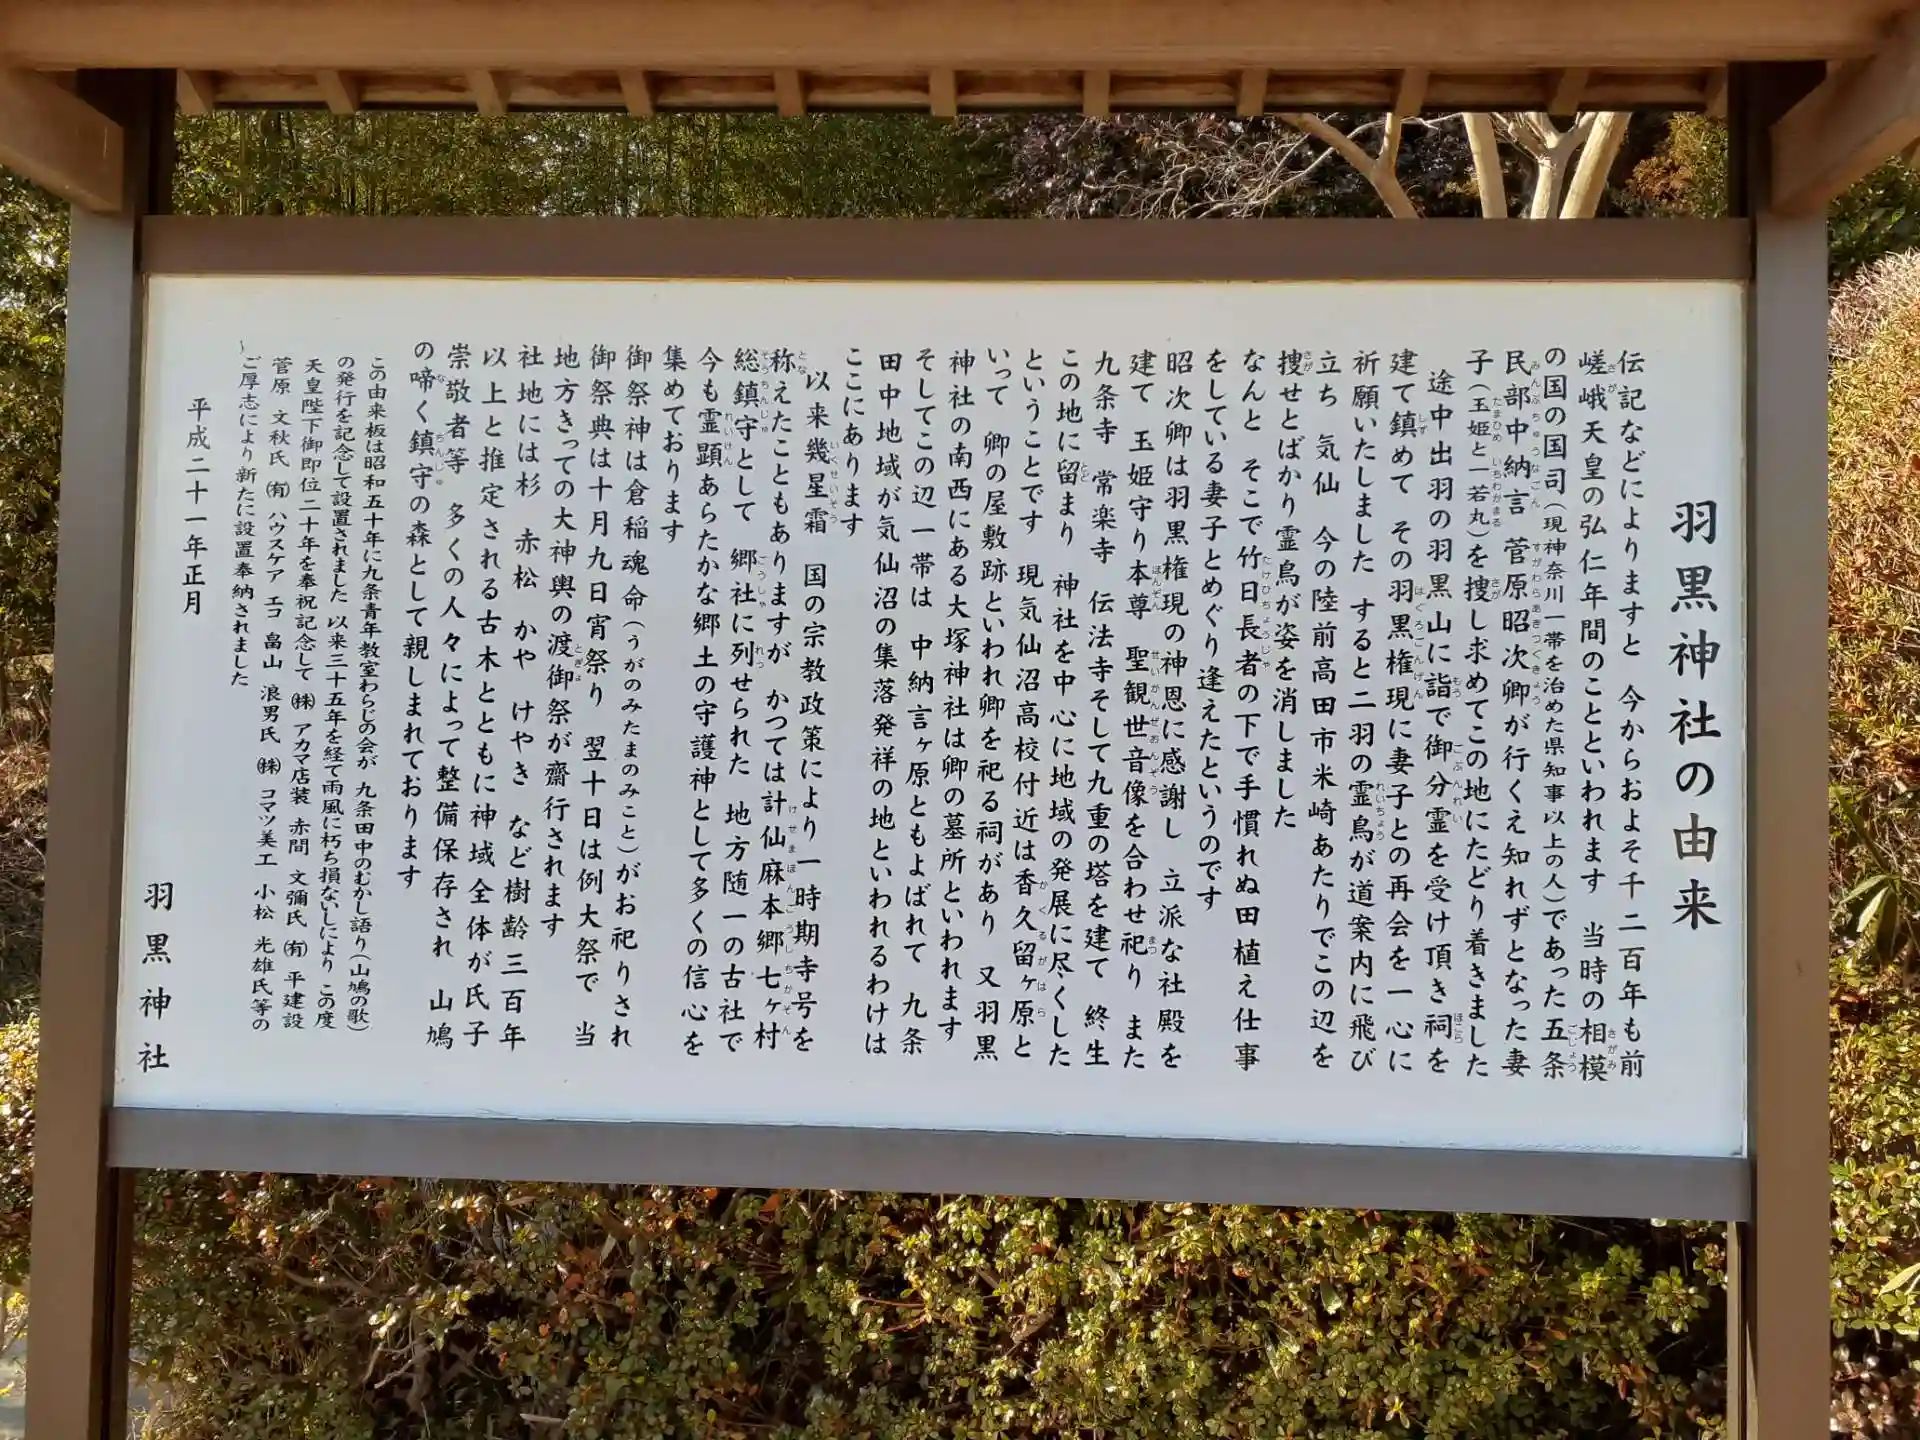 羽黒神社の由来
伝記などによりますと 今からおよそ千二百年も前
嵯峨天皇の弘仁年間のことといわれます 当時の相模
の国の国司(現神奈川一帯を治めた県知事以上の人)であった五条
民部中納言 菅原昭次卿が行くえ知れずとなった妻
子(玉姫と一若丸)を捜し求めてこの地にたどり着きました
途中出羽の羽黒山に詣で御分霊を受け頂き祠を
建て鎮めて その羽黒権現に妻子との再会を一心に
祈願いたしました すると二羽の霊鳥が道案内に飛び
立ち 気仙 今の陸前高田市米崎あたりでこの辺を
捜せとばかり霊鳥が姿を消しました
なんと そこで竹日長者の下で手慣れぬ田植え仕事
をしている妻子とめぐり逢えたというのです
昭次卿は羽黒権現の神恩に感謝し 立派な社殿を
建て 玉姫守り本尊 聖観世音像を合わせ祀り また
九条寺 常楽寺 伝法寺そして九重の塔を建て 終生
この地に留まり 神社を中心に地域の発展に尽くした
ということです 現気仙沼高校付近は香久留ヶ原と
いって 卿の屋敷跡といわれ卿を祀る祠があり 又羽黒
神社の南西にある大塚神社は卿の墓所といわれます
そしてこの辺一帯は 中納言ヶ原ともよばれて 九条
田中地域が気仙沼の集落発祥の地といわれるわけは
ここにあります
以来幾星霜 国の宗教政策により一時期寺号を
称えたこともありますが かつては計仙麻本郷七ヶ村
総鎮守として 郷社に列せられた 地方随一の古社で
今も霊顕あらたかな郷土の守護神として多くの信心を
集めております
御祭神は倉稲魂命(うがのみたまのみこと)がお祀りされ
御祭典は十月九日宵祭り 翌十日は例大祭で 当
地方きっての大神輿の渡御祭が齋行されます
社地には杉 赤松 かや けやき など樹齢三百年
以上と推定される古木とともに神域全体が氏子
崇敬者等 多くの人々によって整備保存され 山鳩
の啼く鎮守の森として親しまれております
この由来板は昭和五十年に九条青年教室わらじの会が 九条田中のむかし語り(山鳩の歌)
の発行を記念して設置されました 以来三十五年を経て雨風に朽ち損ないしにより この度
天皇陛下御即位二十年を奉祝記念して ㈱アカマ店装 赤間 文彌氏 ㈲ 平建設
菅原 文秋氏 ㈲ ハウスケア エコ 畠山 浪男氏 ㈱ コマツ美工 小松 光雄氏等の
ご厚志により新たに設置奉納されました
平成二十一年正月
羽黒神社